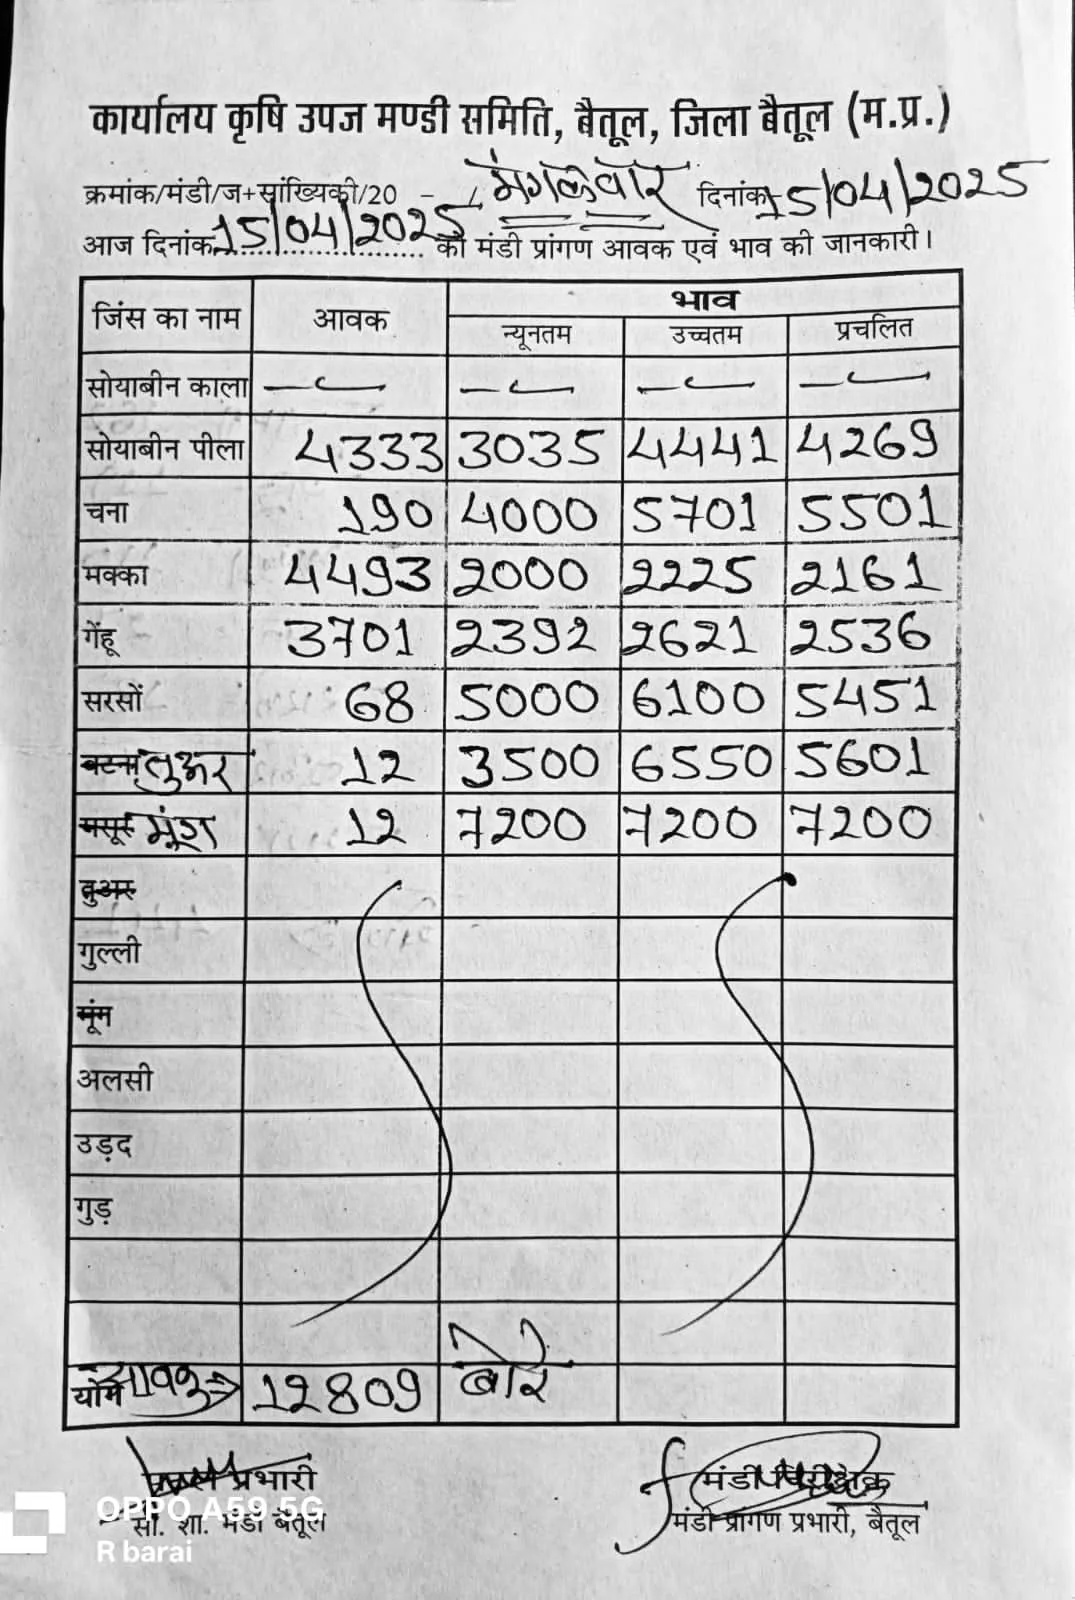 कार्यालय कृषि उपज मण्डी समिति, बैतूल, जिला बैतूल (म.प्र.)
क्रमांक/मंडी/ज+सांख्यिकी/20 - मंगलवार दिनांक 15/04/2025
आज दिनांक 15/04/2025 को मंडी प्रांगण आवक एवं भाव की जानकारी।
जिंस का नाम आवक भाव
न्यूनतम उच्चतम प्रचलित
सोयाबीन काला
सोयाबीन पीला 4333 3035 4441 4269
चना 190 4000 5701 5501
मक्का 4493 2000 2225 2161
गेंहू 3701 2392 2621 2536
सरसों 68 5000 6100 5451
तुअर 12 3500 6550 5601
मसूर मूंग 12 7200 7200 7200
तुअर
गुल्ली
मूंग
अलसी
उड़द
गुड़
योग आवक 12809 बोरे
प्रभारी मंडी निरीक्षक
सां. शा. मंडी बैतूल मंडी प्रांगण प्रभारी, बैतूल
OPPO A59 5G
R barai